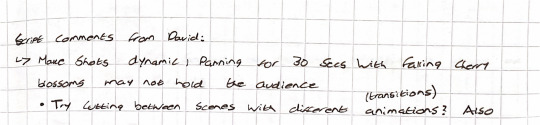 Script comments from David:
↳ Make shots dynamic, Panning for 30 secs with falling cherry
blossoms may not hold the audience
(transitions)
• Try cutting between scenes with different animations? Also